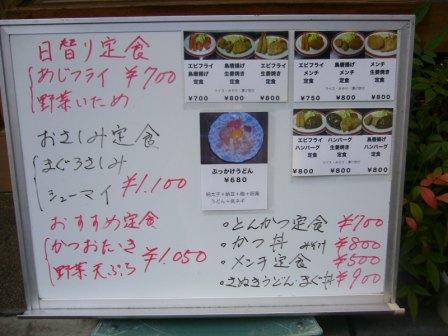 日替り定食
あじフライ ¥700
野菜いため
おさしみ定食
まぐろさしみ
シューマイ ¥1,100
おすすめ定食
かつおたたき
野菜天ぷら ¥1,050
エビフライ
鳥唐揚げ
定食
¥700
鳥唐揚げ
生姜焼き
定食
¥800
エビフライ
生姜焼き
定食
¥800
エビフライ
メンチ
定食
¥750
鳥唐揚げ
メンチ
定食
¥800
メンチ
生姜焼き
定食
¥800
エビフライ
ハンバーグ
定食
¥800
ハンバーグ
生姜焼き
定食
¥800
鳥唐揚げ
ハンバーグ
定食
¥800
ぶっかけうどん
¥680
明太子+納豆+梅+胡麻
うどん+長ネギ
・とんかつ定食 ¥700
・かつ丼 みそ汁 ¥800
・メンチ定食 ¥500
・さぬきうどん・まぐ丼 ¥900